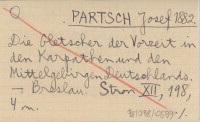 PARTSCH Josef 1882.
Die Gletscher der Vorzeit in
den Karpathen und den
Mittelgebirgen Deutschlands.
- Breslau. Stron XII, 198,
4 m.